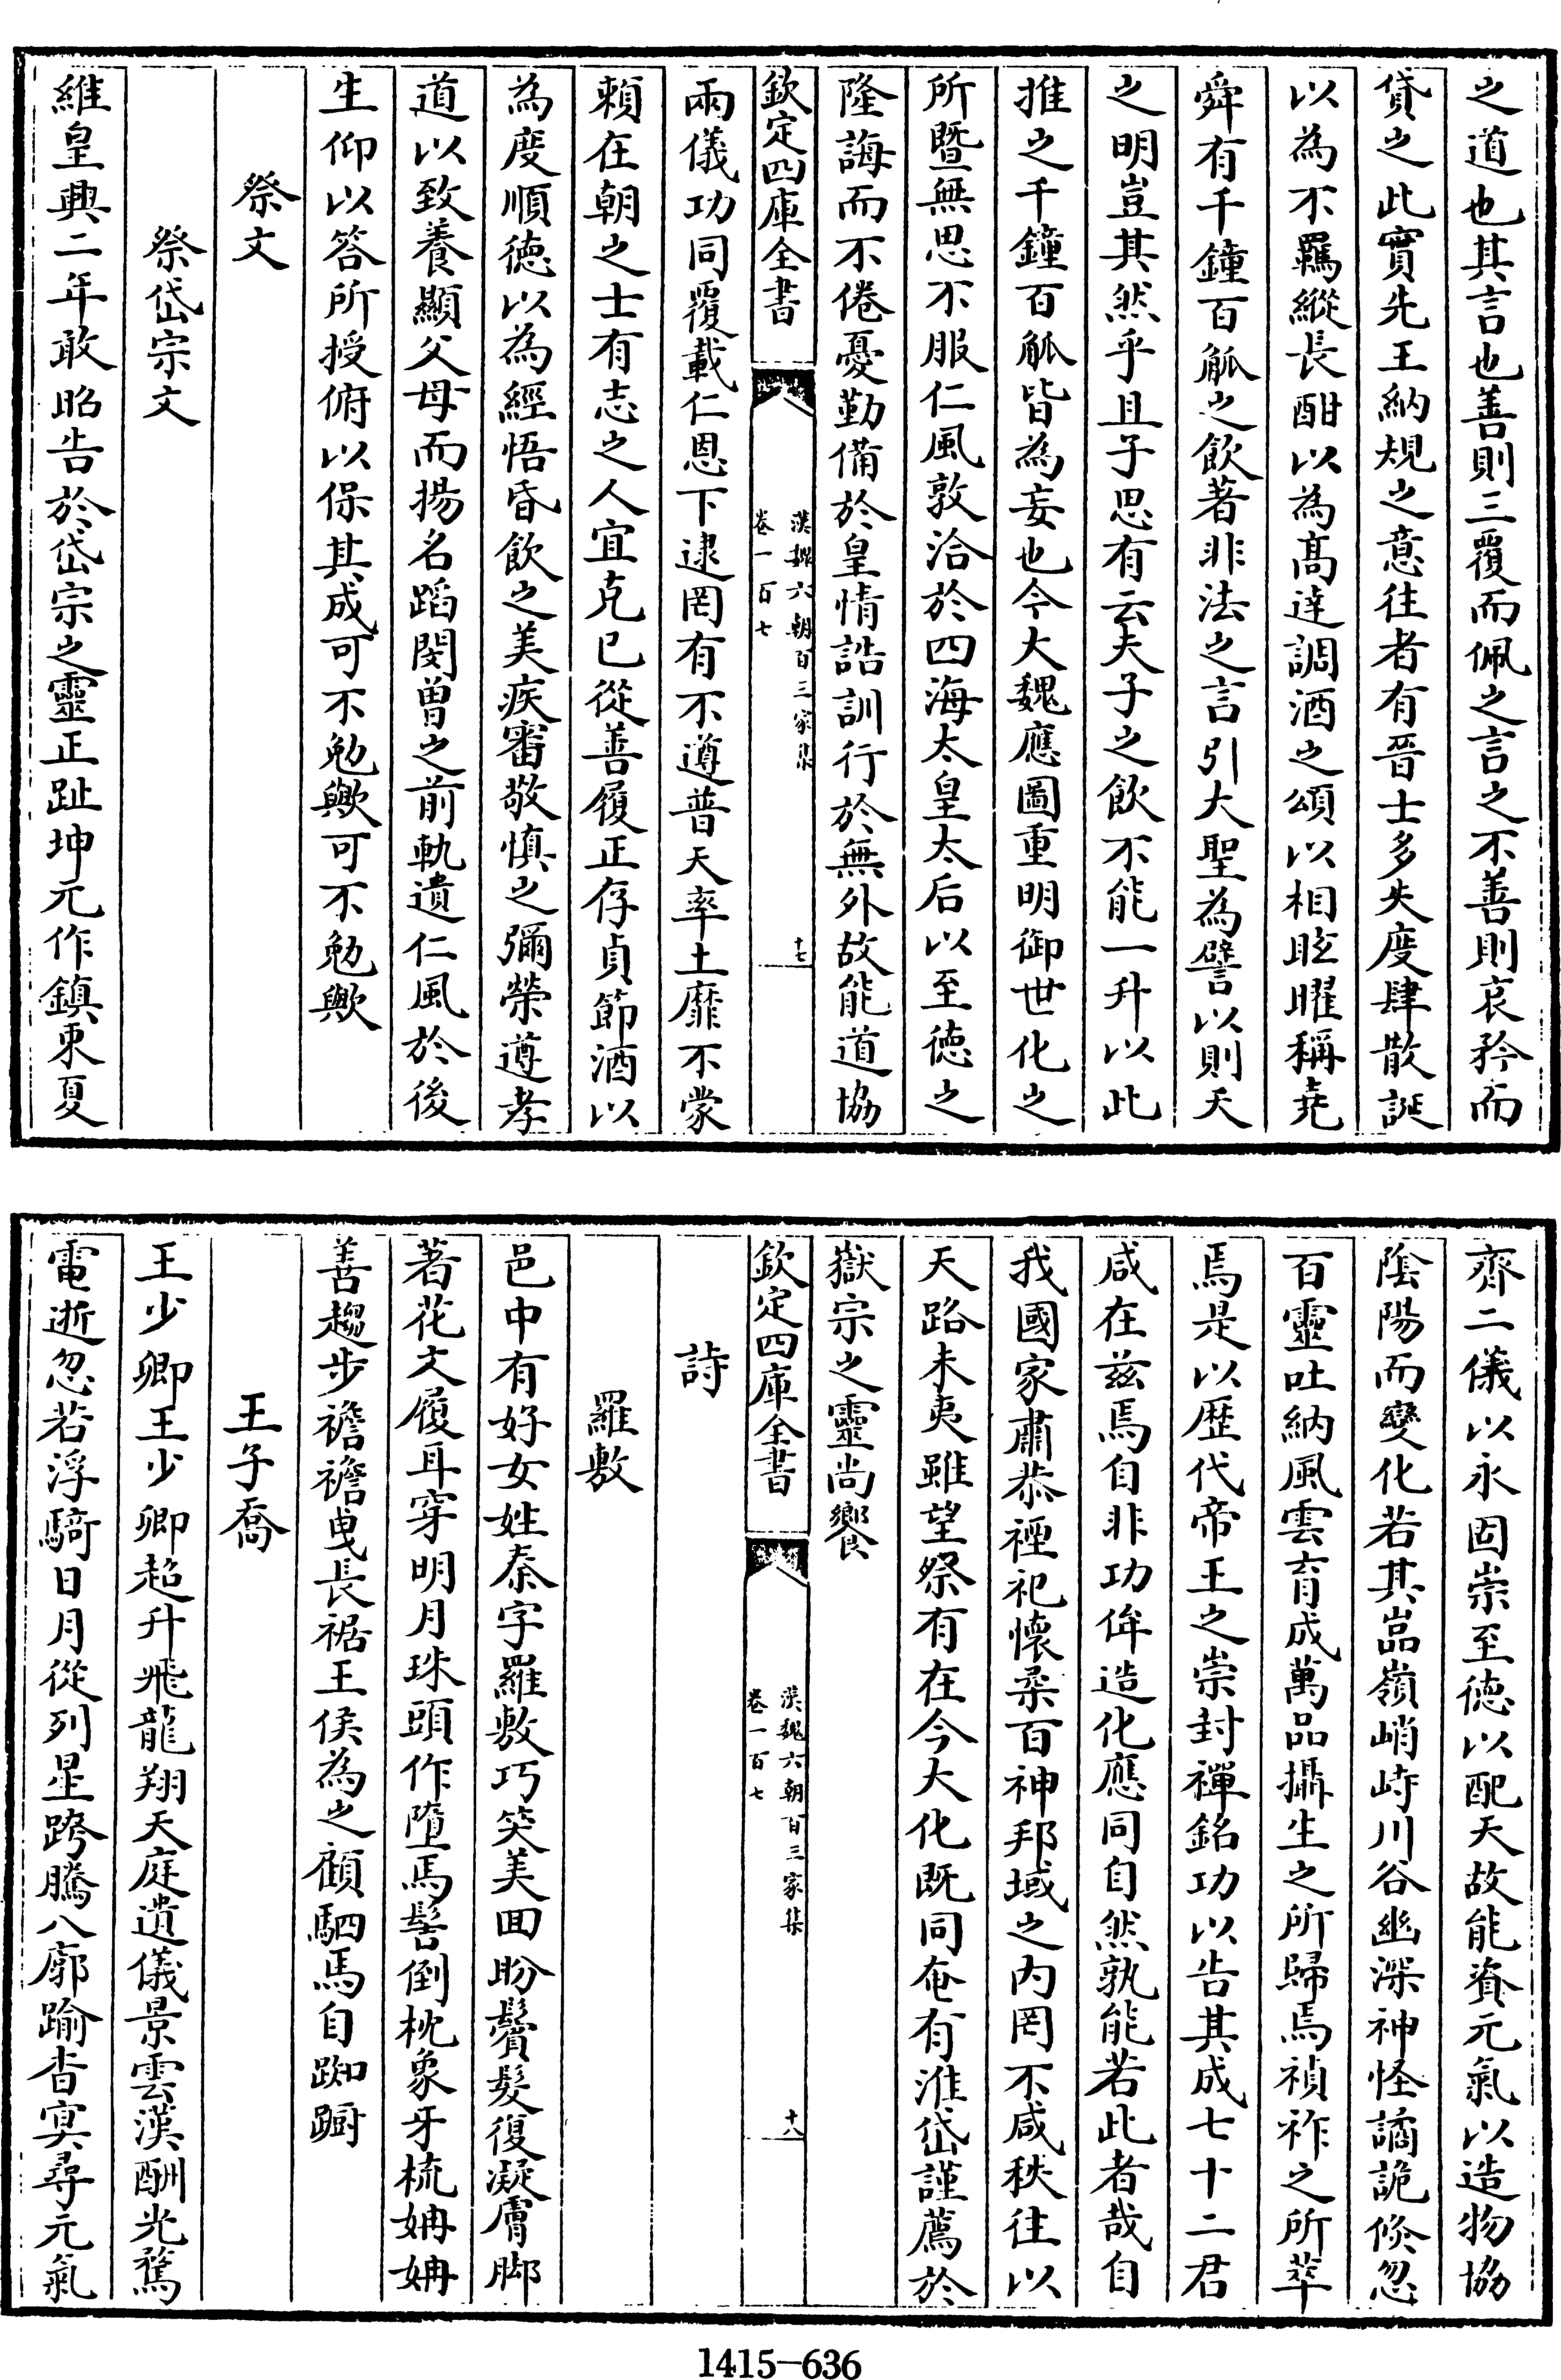 之道也其言也善則三覆而佩之言之不善則哀矜而
貸之此實先王納規之意往者有晉士多失度肆散誕
以為不羈縱長酣以為髙逹調酒之頌以相眩曜稱堯
舜有千鐘百觚之飲著非法之言引大聖為譬以則天
之明豈其然乎且子思有云夫子之飲不能一升以此
推之千鐘百觚皆為妄也今大魏應圖重明御世化之
所暨無思不服仁風敦洽於四海太皇太后以至徳之
隆誨而不倦憂勤備於皇情誥訓行於無外故能道協
欽定四庫全書
漢魏六朝百三家集
卷一百七
十七
兩儀功同覆載仁恩下逮罔有不遵普天率土靡不蒙
賴在朝之士有志之人宜克已從善履正存貞節酒以
為度順徳以為經悟昏飲之美疾審敬慎之彌榮遵孝
道以致養顯父母而揚名蹈閔曽之前軌遺仁風於後
生仰以答所授俯以保其成可不勉歟可不勉歟
祭文
祭岱宗文
維皇興二年敢昭告於岱宗之靈正趾坤元作鎮東夏
齊二儀以永固崇至徳以配天故能資元氣以造物協
陰陽而變化若其嵓嶺峭峙川谷幽深神怪譎詭倐忽
百靈吐納風雲育成萬品攝生之所歸焉禎祚之所萃
焉是以歴代帝王之崇封禪銘功以告其成七十二君
咸在兹焉自非功侔造化應同自然孰能若此者哉自
我國家肅恭禋祀懷柔百神邦域之内罔不咸秩往以
天路未夷雖望祭有在今大化既同奄有淮岱謹薦於
嶽宗之靈尚饗
欽定四庫全書
漢魏六朝百三家集
卷一百七
十八
詩
羅敷
邑中有好女姓秦字羅敷巧笑美囬盼鬢髮復凝膚脚
著花文履耳穿明月珠頭作墮馬髻倒枕象牙梳姌姌
善趨步襜襜曵長裾王侯為之顧駟馬自踟蹰
王子喬
王少卿王少卿超升飛龍翔天庭遺儀景雲漢酬光騖
電逝忽若浮騎日月從列星跨騰八廓踰杳冥尋元氣
1415—636